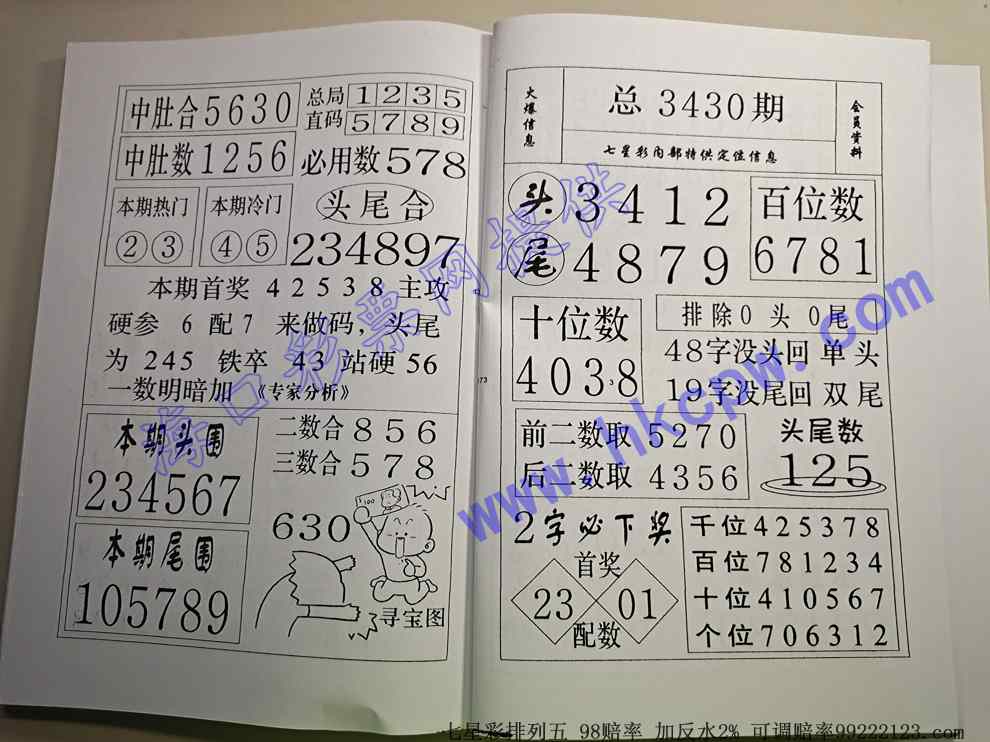 中肚合5630
中肚数1256
总局 1 2 3 5
直码 5 7 8 9
必用数578
本期热门
②③
本期冷门
④⑤
头尾合
234897
本期首奖 4 2 5 3 8 主攻
硬参 6 配 7 来做码，头尾
为 245 铁卒 43 站硬 56
一数明暗加 《专家分析》
本期头围
234567
本期尾围
105789
二数合 8 5 6
三数合 5 7 8
630
100
寻宝图
火爆信息
总 3430期
七星彩内部特供定位信息
会员资料
头 3 4 1 2
尾 4 8 7 9
百位数
6781
十位数
4038
排除0 头 0尾
48字没头回 单 头
19字没尾回 双 尾
前二数取 5270
后二数取 4356
头尾数
125
2字必下奖
首奖
23 01
配数
千位 4 2 5 3 7 8
百位 7 8 1 2 3 4
十位 4 1 0 5 6 7
个位 7 0 6 3 1 2
73
海口彩票网提供
www.hkcpw.com
七星彩排列五 98赔率 加反水2% 可调赔率99222123.com